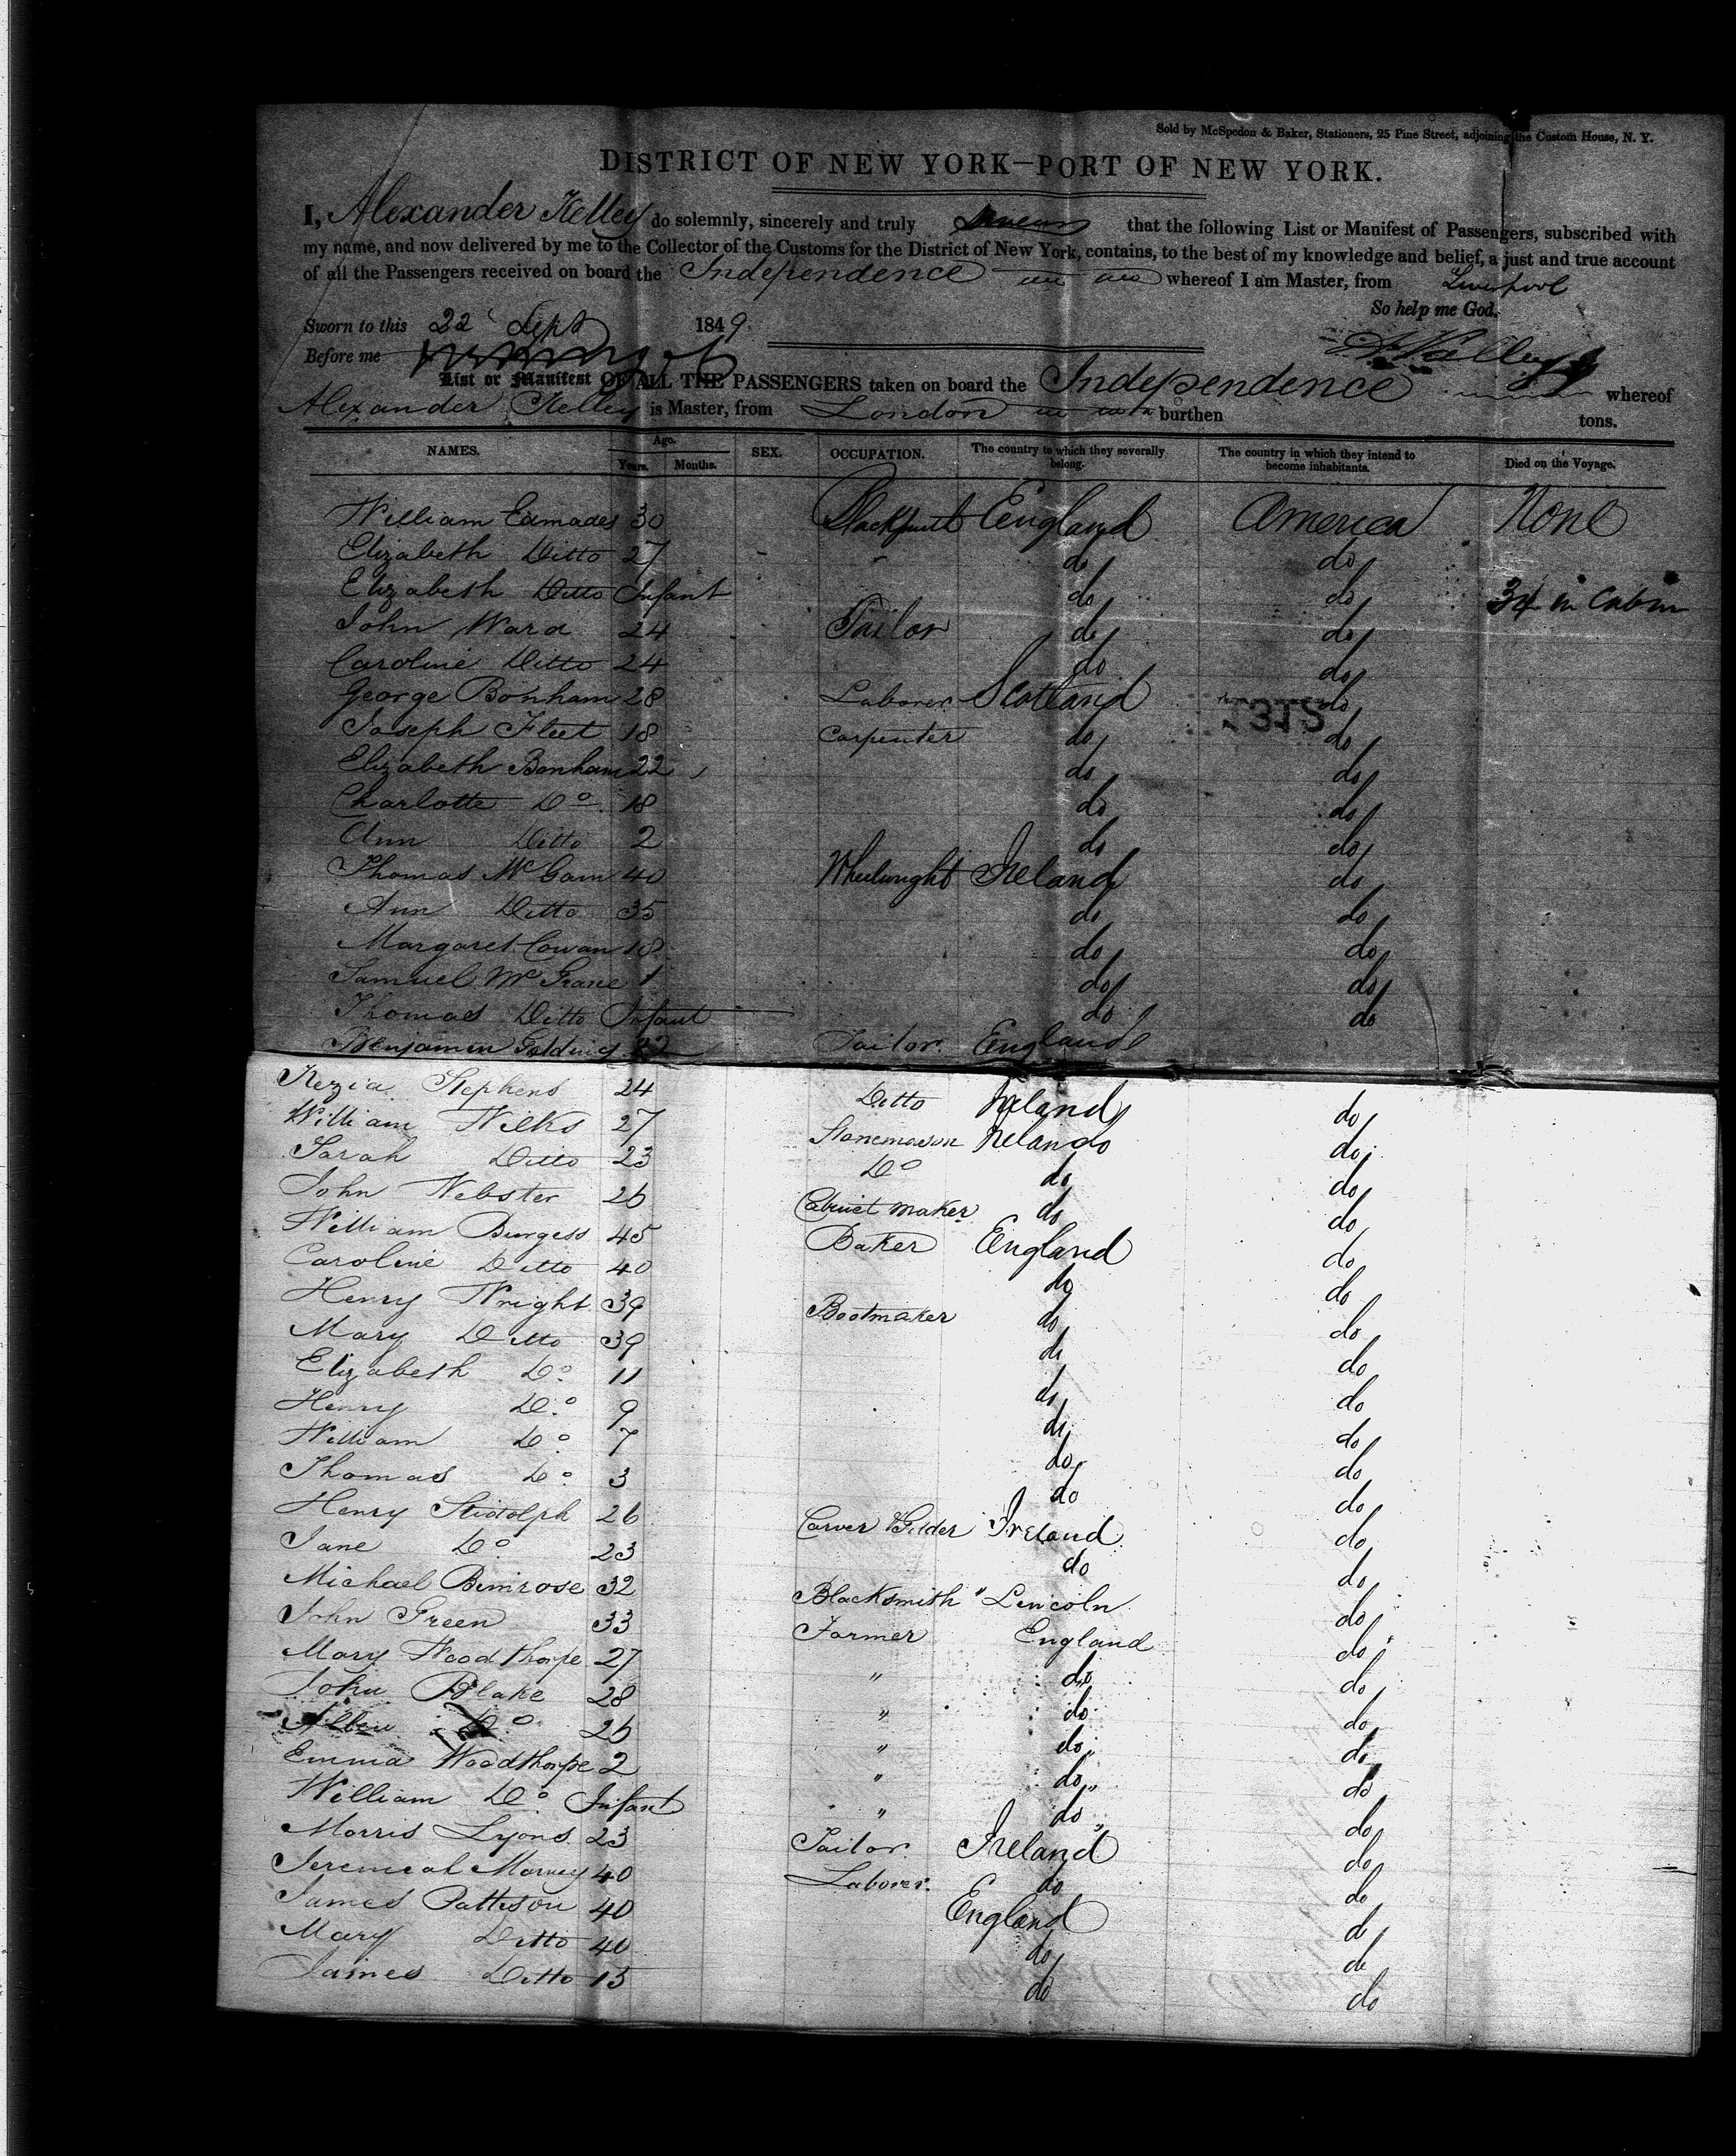 Sold by McSpedon & Baker, Stationers, 25 Pine Street, adjoining the Custom House, N. Y.
DISTRICT OF NEW YORK—PORT OF NEW YORK.
I, Alexander Kelley do solemnly, sincerely and truly that the following List or Manifest of Passengers, subscribed with
my name, and now delivered by me to the Collector of the Customs for the District of New York, contains, to the best of my knowledge and belief, a just and true account
of all the Passengers received on board the Independence whereof I am Master, from Liverpool
So help me God.
Sworn to this 22 Sept 1849.
Before me
A Kelley
List or Manifest OF ALL THE PASSENGERS taken on board the Independence whereof
Alexander Kelley is Master, from London burthen tons.
NAMES. Age. Years. Months. SEX. OCCUPATION. The country to which they severally belong. The country in which they intend to become inhabitants. Died on the Voyage.
William Eamades 30 Blacksmith England America None
Elizabeth Ditto 27 " do do
Elizabeth Ditto Infant do do 34 in Cabin
John Ward 24 Tailor do do
Caroline Ditto 24 do do
George Bonham 28 Laborer Scotland do
1312
Joseph Fleet 18 Carpenter do do
Elizabeth Bonham 22 do do
Charlotte Do 18 do do
Ann Ditto 2 do do
Thomas McGarn 40 Wheelwright Ireland do
Ann Ditto 35 do do
Margaret Cowan 18 do do
Samuel McGrane 1 do do
Thomas Ditto Infant do do
Benjamin Golding Tailor England
Kezia Stephens 24 Ditto Ireland do
William Wilks 27 Stonemason Ireland do
Sarah Ditto 23 Do do do
John Webster 26 Cabinet maker do do
William Burgess 45 Baker England do
Caroline Ditto 40 do do
Henry Wright 39 Bootmaker do do
Mary Ditto 39 do do
Elizabeth Do 11 do do
Henry Do 9 do do
William Do 7 do do
Thomas Do 3 do do
Henry Stidolph 26 Carver & Gilder Ireland do
Jane Do 23 do do
Michael Bimrose 32 Blacksmith " Lincoln do
John Green 33 Farmer England do
Mary Woodthorpe 27 " do do
John Blake 28 " do do
Do 26 " do do
Emma Woodthorpe 2 " do do
William Do Infant " do do
Morris Lyons 23 Tailor Ireland do
Jeremiah 40 Laborer do do
James Pattison 40 England do
Mary Ditto 40 do do
James Ditto 15 do do